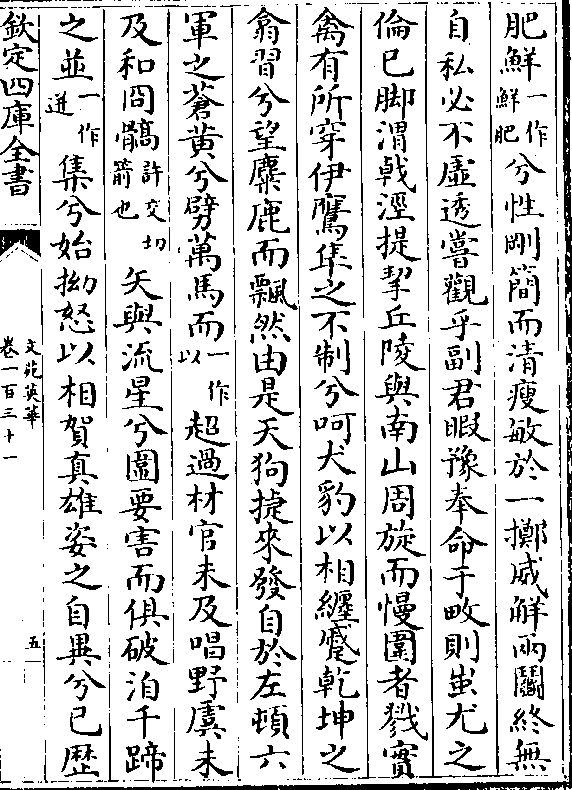 肥鮮一作鮮肥兮性剛簡而清瘦敏於一擲威解兩鬭終無
自私必不虛透嘗觀乎副君暇豫奉命于畋則蚩尤之
倫已脚渭戟涇提挈丘陵與南山周旋而慢圍者戮實
禽有所穿伊鷹隼之不制兮呵犬豹以相纒蹙乾坤之
翕習兮望麋鹿而飄然由是天狗捷來發自於左頓六
軍之蒼黃兮劈萬馬而一作以超過材官未及唱野虞未
及和冏髇許交切箭也矢與流星兮圍要害而俱破洎千蹄
之並一作迸集兮始拗怒以相賀真雄姿之自異兮已歴
欽定四庫全書
文苑英華
卷一百三十一
五